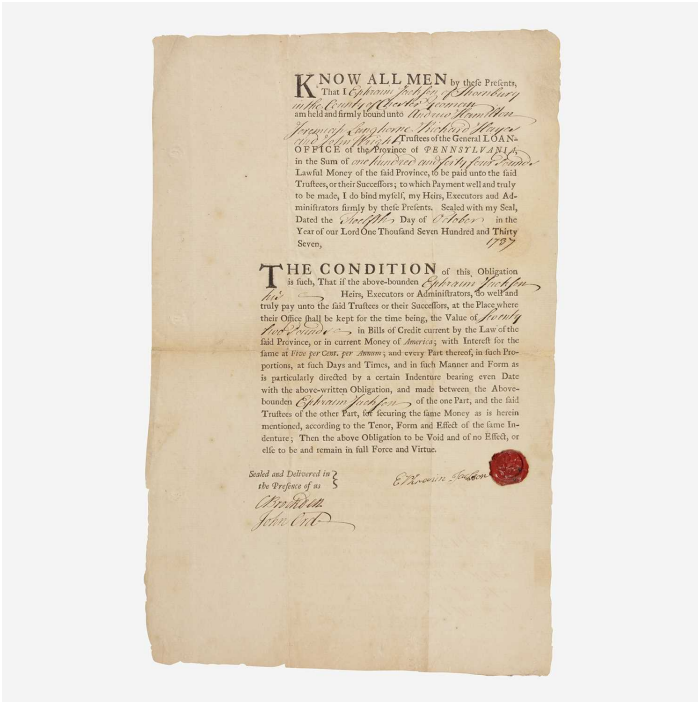 KNOW ALL MEN by these Presents,
That I Ephraim Jackson of Thornbury
in the County of Chester Yeoman
am held and firmly bound unto Andrew Hamilton
Jeremiah Langhorne Richard Hayes
and John Wright, Trustees of the General LOAN-
OFFICE of the Province of PENNSYLVANIA,
in the Sum of one hundred and forty four Pounds
Lawful Money of the said Province, to be paid unto the said
Trustees, or their Successors; to which Payment well and truly
to be made, I do bind myself, my Heirs, Executors and Ad-
ministrators firmly by these Presents. Sealed with my Seal,
Dated the Twelfth Day of October in the
Year of our Lord One Thousand Seven Hundred and Thirty
Seven, 1737
THE CONDITION of this Obligation
is such, That if the above-bounden Ephraim Jackson
his Heirs, Executors or Administrators, do well and
truly pay unto the said Trustees or their Successors, at the Place where
their Office shall be kept for the time being, the Value of Seventy
two Pounds in Bills of Credit current by the Law of the
said Province, or in current Money of America; with Interest for the
same at Five per Cent. per Annum; and every Part thereof, in such Pro-
portions, at such Days and Times, and in such Manner and Form as
is particularly directed by a certain Indenture bearing even Date
with the above-written Obligation, and made between the Above-
bounden Ephraim Jackson of the one Part, and the said
Trustees of the other Part, for securing the same Money as is herein
mentioned, according to the Tenor, Form and Effect of the same In-
denture; Then the above Obligation to be Void and of no Effect, or
else to be and remain in full Force and Virtue.
Sealed and Delivered in
the Presence of us
Ephraim Jackson
C Brockden
John Ord